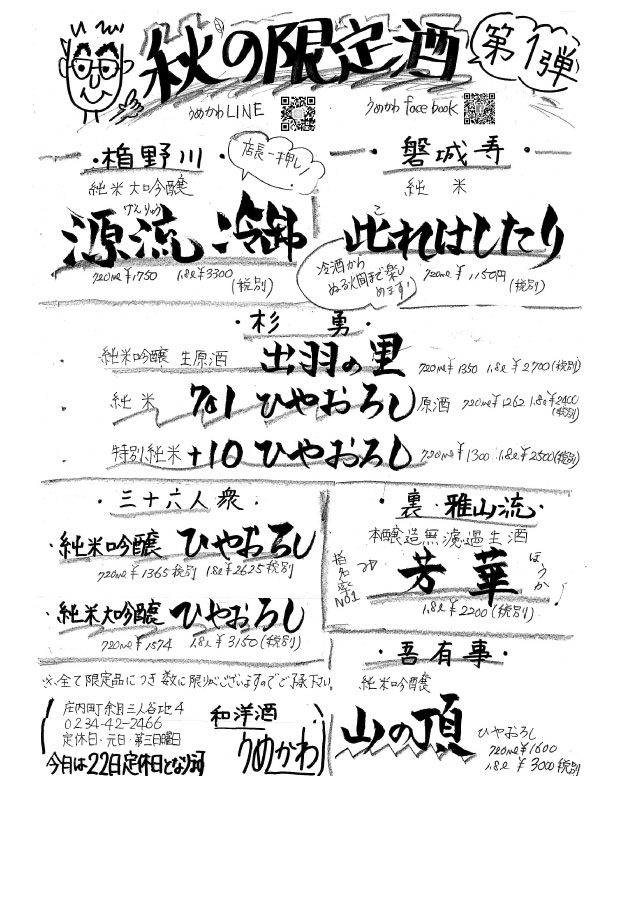 秋の限定酒
第1弾
うめかわLINE
うめかわ face book
・楯野川・
純米大吟醸
店長一押し!
げんりゅう
源流 冷卸
720ml ¥1750 1.8ℓ ¥3300
(税別)
・磐城壽・
純米
こ
此れはしたり
冷酒から
ぬる火間まで楽し
めます!
720ml ¥1,150円
(税別)
・杉勇・
・純米吟醸 生原酒 出羽の里 720ml ¥1350 1.8ℓ ¥2700(税別)
・純米 701 ひやおろし 原酒 720ml ¥1262 1.8ℓ ¥2400
(税別)
・特別純米 +10 ひやおろし 720ml ¥1300 1.8ℓ ¥2500(税別)
・三十六人衆・
・純米吟醸 ひやおろし
720ml ¥1365税別 1.8ℓ ¥2625税別
・純米大吟醸 ひやおろし
720ml ¥1574 1.8ℓ ¥3150(税別)
・裏・雅山流・
本醸造無濾過生酒
指名率
NO1
芳華
ほうか
1.8ℓ ¥2200(税別)
・吾有事・
純米吟醸
山の頂
ひやおろし
720ml ¥1600
1.8ℓ ¥3000税別
※全て限定品につき数に限りがございますのでご了承下さい。
庄内町余目三人谷地4
0234-42-2466
定休日・元日・第三日曜日
今月は22日定休日となります
和洋酒
うめかわ